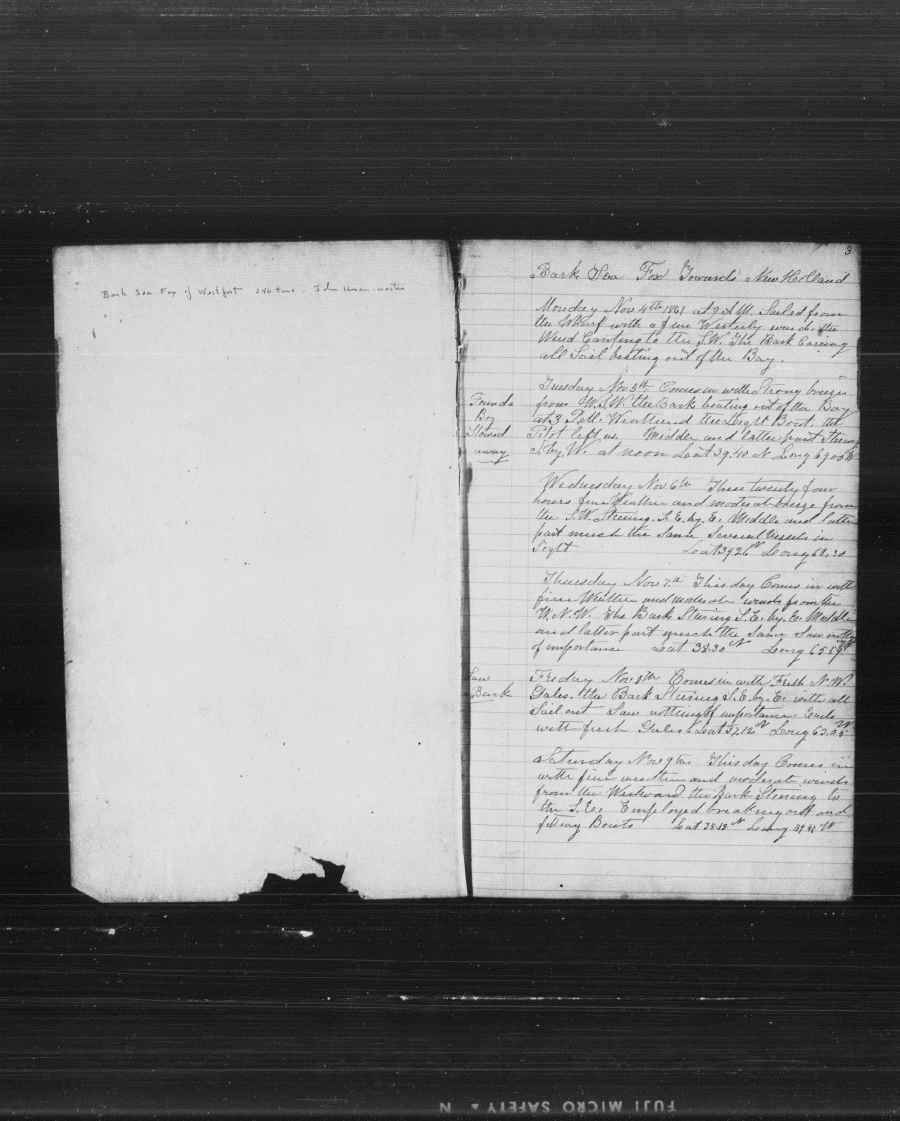 Bark Sea Fox of Westport 246 tons. John master
3
Bark Sea Fox Towards New Holland
Monday Nov 4th 1861 at 9 A.M. Sailed from
the Wharf with a fine Westerly wind. the
Wind Canting to the S.W. The Bark Carring
all Sail beating out of the Bay.
Tuesday Nov 5th Comes in with Strong breeze
from W.S.W. the Bark beating out of the Bay
at 3 P.M. Weatherd the Light Boat. the
Pilot left us. Middle and latter part Stering
S. by W. at noon Lat 39.40 N Long 69.00 W
Found a
Boy
Stowed
away
Wednesday Nov 6th These twenty four
hours fine Weather and moderat breeze from
the S.W. Stering S.E. by. E. Middle and latter
part much the Same Several Vessels in
Sight Lat 39 26 N Long 68.30
Thursday Nov 7th This day Comes in with
fine Weather and moderate winds from the
W.N.W. the Bark Stering S.E. by. E. Middle
and latter part much the Same Saw nothing
of importance Lat 38.30 N Long 65.59 W
Saw
a Bark
Friday Nov 8th Comes in with Fresh N.W.
Gales. the Bark Stearing S.E. by. E. with all
Sail out Saw nothing of importance Ends
with fresh Gales Lat 37.12 N Long 63.05 W
Saturday Nov 9th This day Comes in
with fine weather and moderate winds
from the Westward the Bark Stering to
the S.E. Employed breaking out and
fitting Boats Lat 35.13 N Long
FUJI MICRO SAFETY N